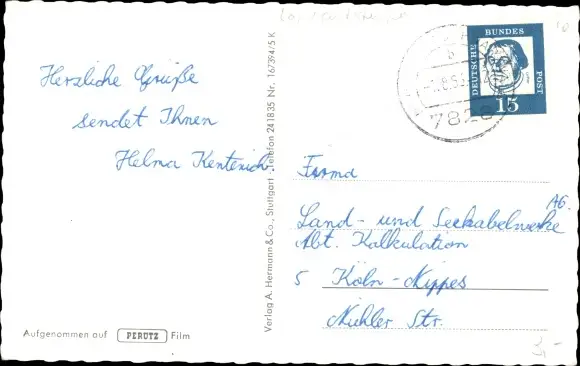 Herzliche Grüße
sendet Ihnen
Helma Kentenich
Aufgenommen auf PERUTZ Film
Verlag A. Hermann & Co., Stuttgart · Telefon 241835 Nr. 167394/5 K
DEUTSCHE
BUNDES
POST
15
7828
Firma
Land- und Seekabelwerke
AG.
Abt. Kalkulation
5 Köln-Nippes
Niehler Str.
3,-